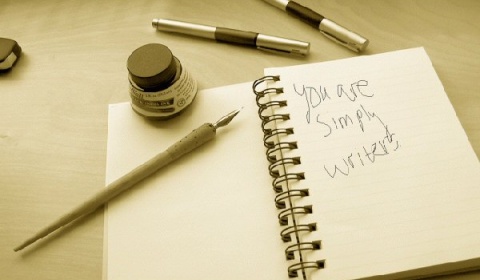 You are
Simply
writers